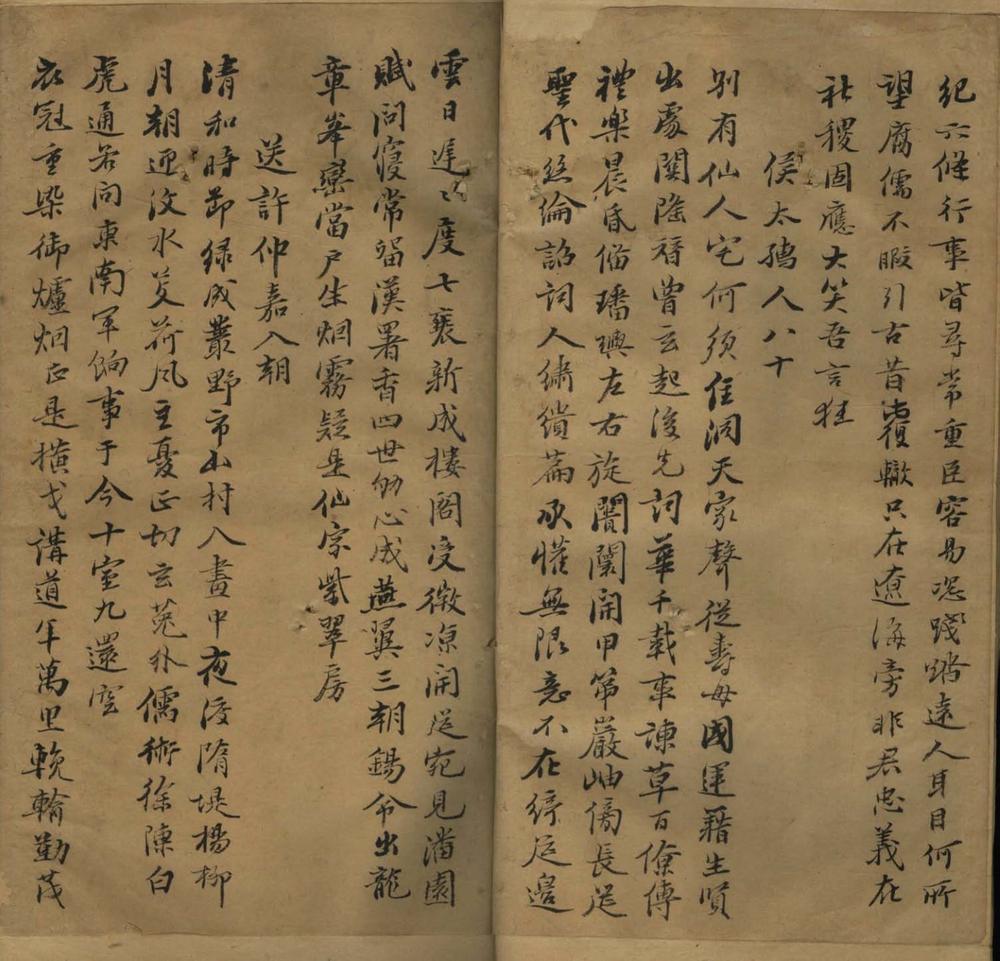 紀六條行事皆尋常重臣容易況踐踏遠人身目何所
望腐儒不暇引古昔覆轍只在遼海旁非君忠義在
社稷固應大笑吾言狂
侯太孺人八十
別有仙人宅何須住洞天家聲從壽母國運藉生賢
出處關隆替曾玄起後先詞華千載事諫草百僚傳
禮樂晨昏備璠璵左右旋闤闠開甲第巖岫僑長筵
聖代絲綸詔詞人繡繢篇承懽無限意不在綺筵邊
雲日遲遲度七襄新成樓閣浸微涼開筵宛見潘園
賦問寢常留漢署香四世幼心成燕翼三朝錫命出龍
章峯巒當戶生烟霧疑是仙宗紫翠房
送許仲嘉入朝
清和時節綠成叢野市山村入畫中夜渡隋堤楊柳
月朝迎汶水芰荷風主憂正切玄菟外儒術徐陳白
虎通若問東南軍餉事于今十室九還空
衣冠重染御爐烟正是橫戈講道年萬里輓輸勤茂